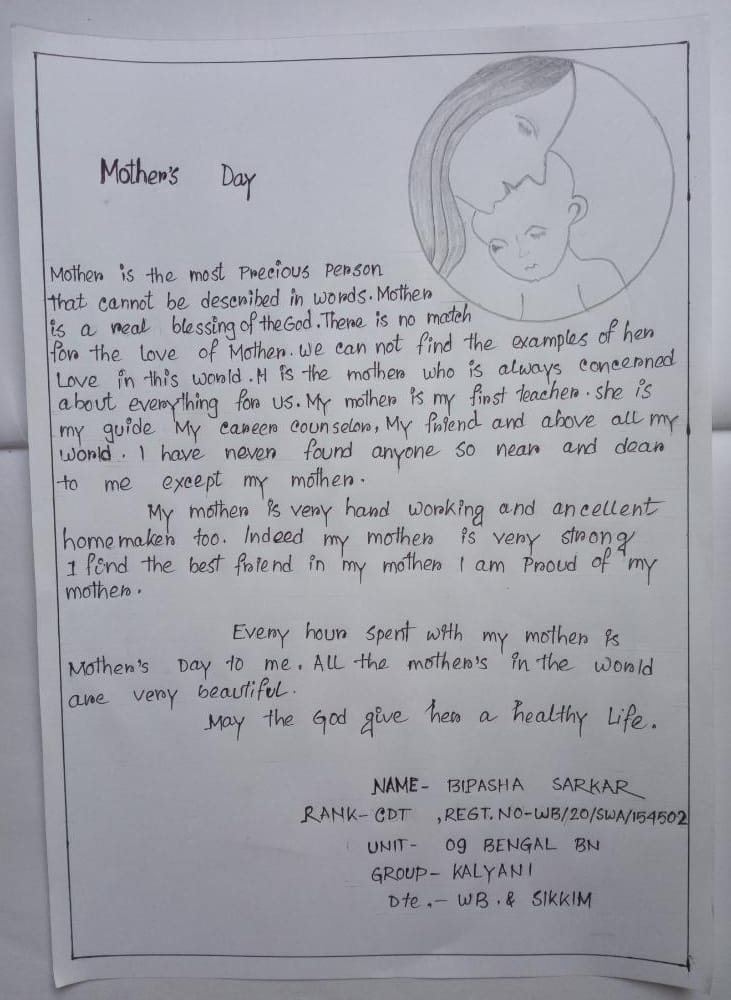 Mother's Day
Mother is the most Precious Person
that cannot be described in words. Mother
is a real blessing of the God. There is no match
for the love of Mother. We can not find the examples of her
Love in this world. It is the mother who is always concerned
about everything for us. My mother is my first teacher. she is
my guide My career counselor, My friend and above all my
world. I have never found anyone so near and dear
to me except my mother.
My mother is very hard working and an cellent
homemaker too. Indeed my mother is very strong
I find the best friend in my mother I am Proud of my
mother.
Every hour spent with my mother is
Mother's Day to me. All the mother's in the world
are very beautiful.
May the God give her a healthy Life.
NAME- BIPASHA SARKAR
RANK- CDT , REGT. NO-WB/20/SWA/154502
UNIT- 09 BENGAL BN
GROUP- KALYANI
Dte.- WB. & SIKKIM